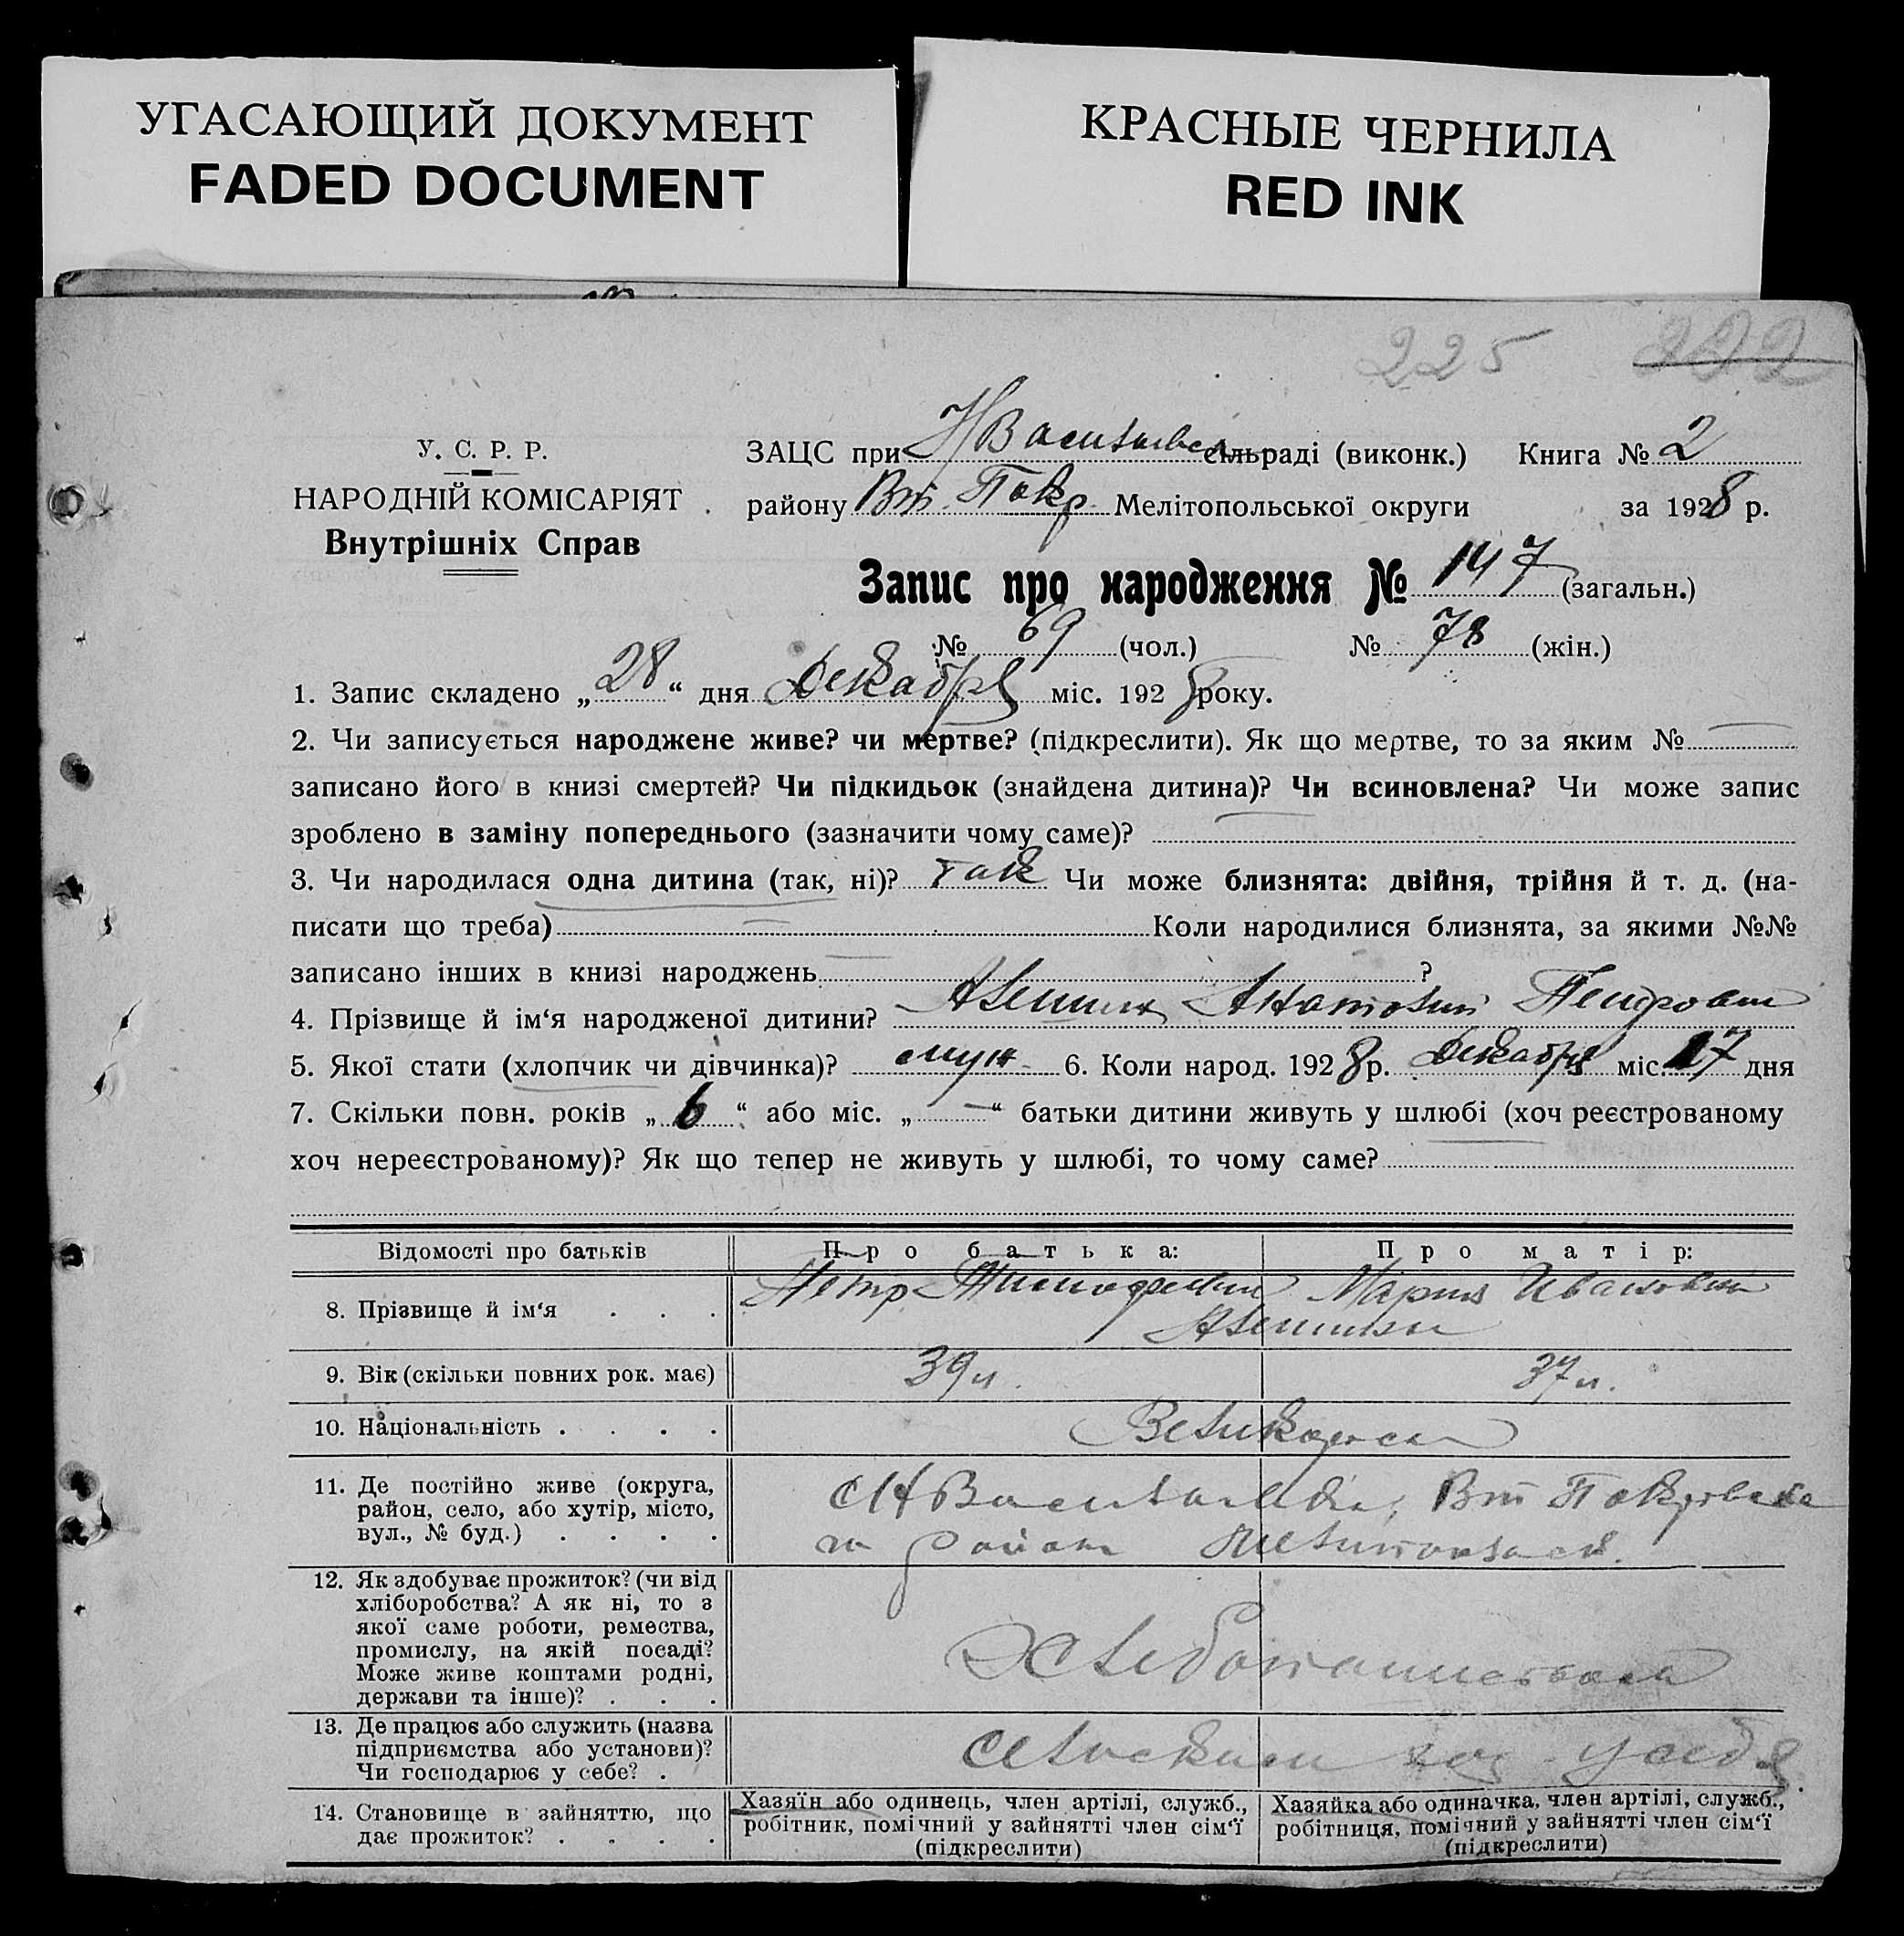 УГАСАЮЩИЙ ДОКУМЕНТ
FADED DOCUMENT
КРАСНЫЕ ЧЕРНИЛА
RED INK
225 222
У. С. Р. Р.
НАРОДНІЙ КОМІСАРІЯТ
Внутрішніх Справ
ЗАЦС при НВасильевск сільраді (виконк.) Книга № 2
району Вт. Покр. Мелітопольської округи за 1928 р.
Запис про народження № 147 (загальн.)
№ 69 (чол.) № 78 (жін.)
1. Запис складено „28“ дня Декабря міс. 1928 року.
2. Чи записується народжене живе? чи мертве? (підкреслити). Як що мертве, то за яким №
записано його в книзі смертей? Чи підкидьок (знайдена дитина)? Чи всиновлена? Чи може запис
зроблено в заміну попереднього (зазначити чому саме)?
3. Чи народилася одна дитина (так, ні)? так Чи може близнята: двійня, трійня й т. д. (на-
писати що треба) Коли народилися близнята, за якими №№
записано інших в книзі народжень ?
4. Прізвище й ім‘я народженої дитини? Анатолий Петрович
5. Якої стати (хлопчик чи дівчинка)? муж. 6. Коли народ. 1928 р. Декабря міс. 17 дня
7. Скільки повн. років „6“ або міс. „—“ батьки дитини живуть у шлюбі (хоч реєстрованому
хоч нереєстрованому)? Як що тепер не живуть у шлюбі, то чому саме?
Відомості про батьків Про батька: Про матір:
8. Прізвище й ім‘я . . . Петр Тимофеевич Мария Ивановна
9. Вік (скільки повних рок. має) 39 л. 37 л.
10. Національність . . . . Великоросы
11. Де постійно живе (округа,
район, село, або хутір, місто,
вул., № буд.) . . . .
с НВасильевка, Вт Покровска
го района Мелитопольск.
12. Як здобуває прожиток? (чи від
хліборобства? А як ні, то з
якої саме роботи, ремества,
промислу, на якій посаді?
Може живе коштами родні,
держави та інше)? . . .
Хлебопашеством
13. Де працює або служить (назва
підприємства або установи)?
Чи господарює у себе? .
сельским хоз у себя.
14. Становище в зайняттю, що
дає прожиток? . . . .
Хазяїн або одинець, член артілі, служб.,
робітник, помічний у зайнятті член сім‘ї
(підкреслити)
Хазяйка або одиначка, член артілі, служб.,
робітниця, помічний у зайнятті член сім‘ї
(підкреслити)